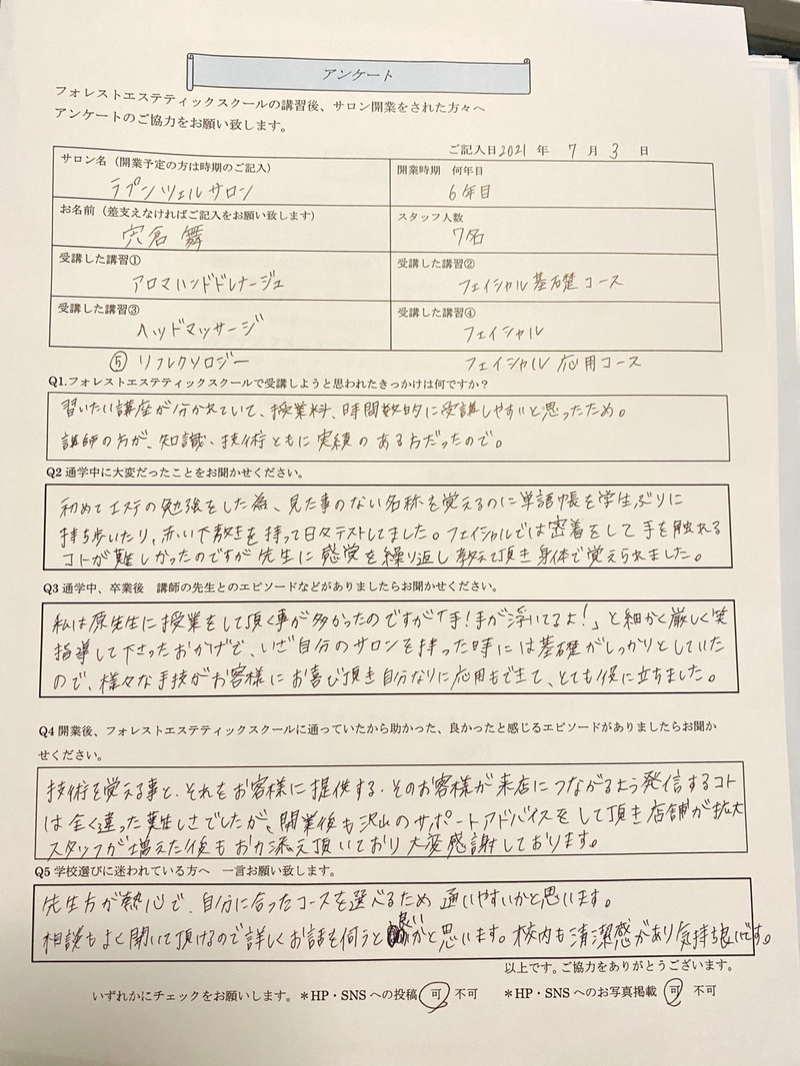 アンケート
フォレストエステティックスクールの講習後、サロン開業をされた方々へ
アンケートのご協力をお願い致します。
ご記入日2021 年 7 月 3 日
サロン名(開業予定の方は時期のご記入)
ラプンツェルサロン
開業時期 何年目
6年目
お名前(差支えなければご記入をお願い致します)
宍倉 舞
スタッフ人数
7名
受講した講習①
アロマハンドドレナージュ
受講した講習②
フェイシャル基礎コース
受講した講習③
ヘッドマッサージ
受講した講習④
フェイシャル
⑤ リフレクソロジー
フェイシャル応用コース
Q1.フォレストエステティックスクールで受講しようと思われたきっかけは何ですか?
習いたい講座が分かれていて、授業料、時間数的に受講しやすいと思ったため。
講師の方が、知識、技術ともに実績のある方だったので。
Q2 通学中に大変だったことをお聞かせください。
初めてエステの勉強をした為、見た事のない名称を覚えるのに単語帳を学生ぶりに
持ち歩いたり、赤い下敷きを持って日々テストしてました。フェイシャルでは密着をして手を触れる
コトが難しかったのですが先生に感覚を繰り返し教えて頂き身体で覚えられました。
Q3 通学中、卒業後 講師の先生とのエピソードなどがありましたらお聞かせください。
私は原先生に授業をして頂く事が多かったのですが「手!手が浮いてるよ!」と細かく厳しく笑
指導して下さったおかげで、いざ自分のサロンを持った時には基礎がしっかりとしていた
ので、様々な手技がお客様にお喜び頂き自分なりに応用もできて、とても役に立ちました。
Q4 開業後、フォレストエステティックスクールに通っていたから助かった、良かったと感じるエピソードがありましたらお聞か
せください。
技術を覚える事と、それをお客様に提供する、そのお客様が来店につながるよう発信するコト
は全く違った難しさでしたが、開業後も沢山のサポートアドバイスをして頂き店舗が拡大
スタッフが増えた後もお力添え頂いており大変感謝しております。
Q5 学校選びに迷われている方へ 一言お願い致します。
先生方が熱心で、自分に合ったコースを選べるため通いやすいかと思います。
相談もよく聞いて頂けるので詳しくお話を伺うと良いかと思います。校内も清潔感があり気持ち良いです。
以上です。ご協力をありがとうございます。
いずれかにチェックをお願いします。*HP・SNS への投稿 可 不可 *HP・SNS へのお写真掲載 可 不可